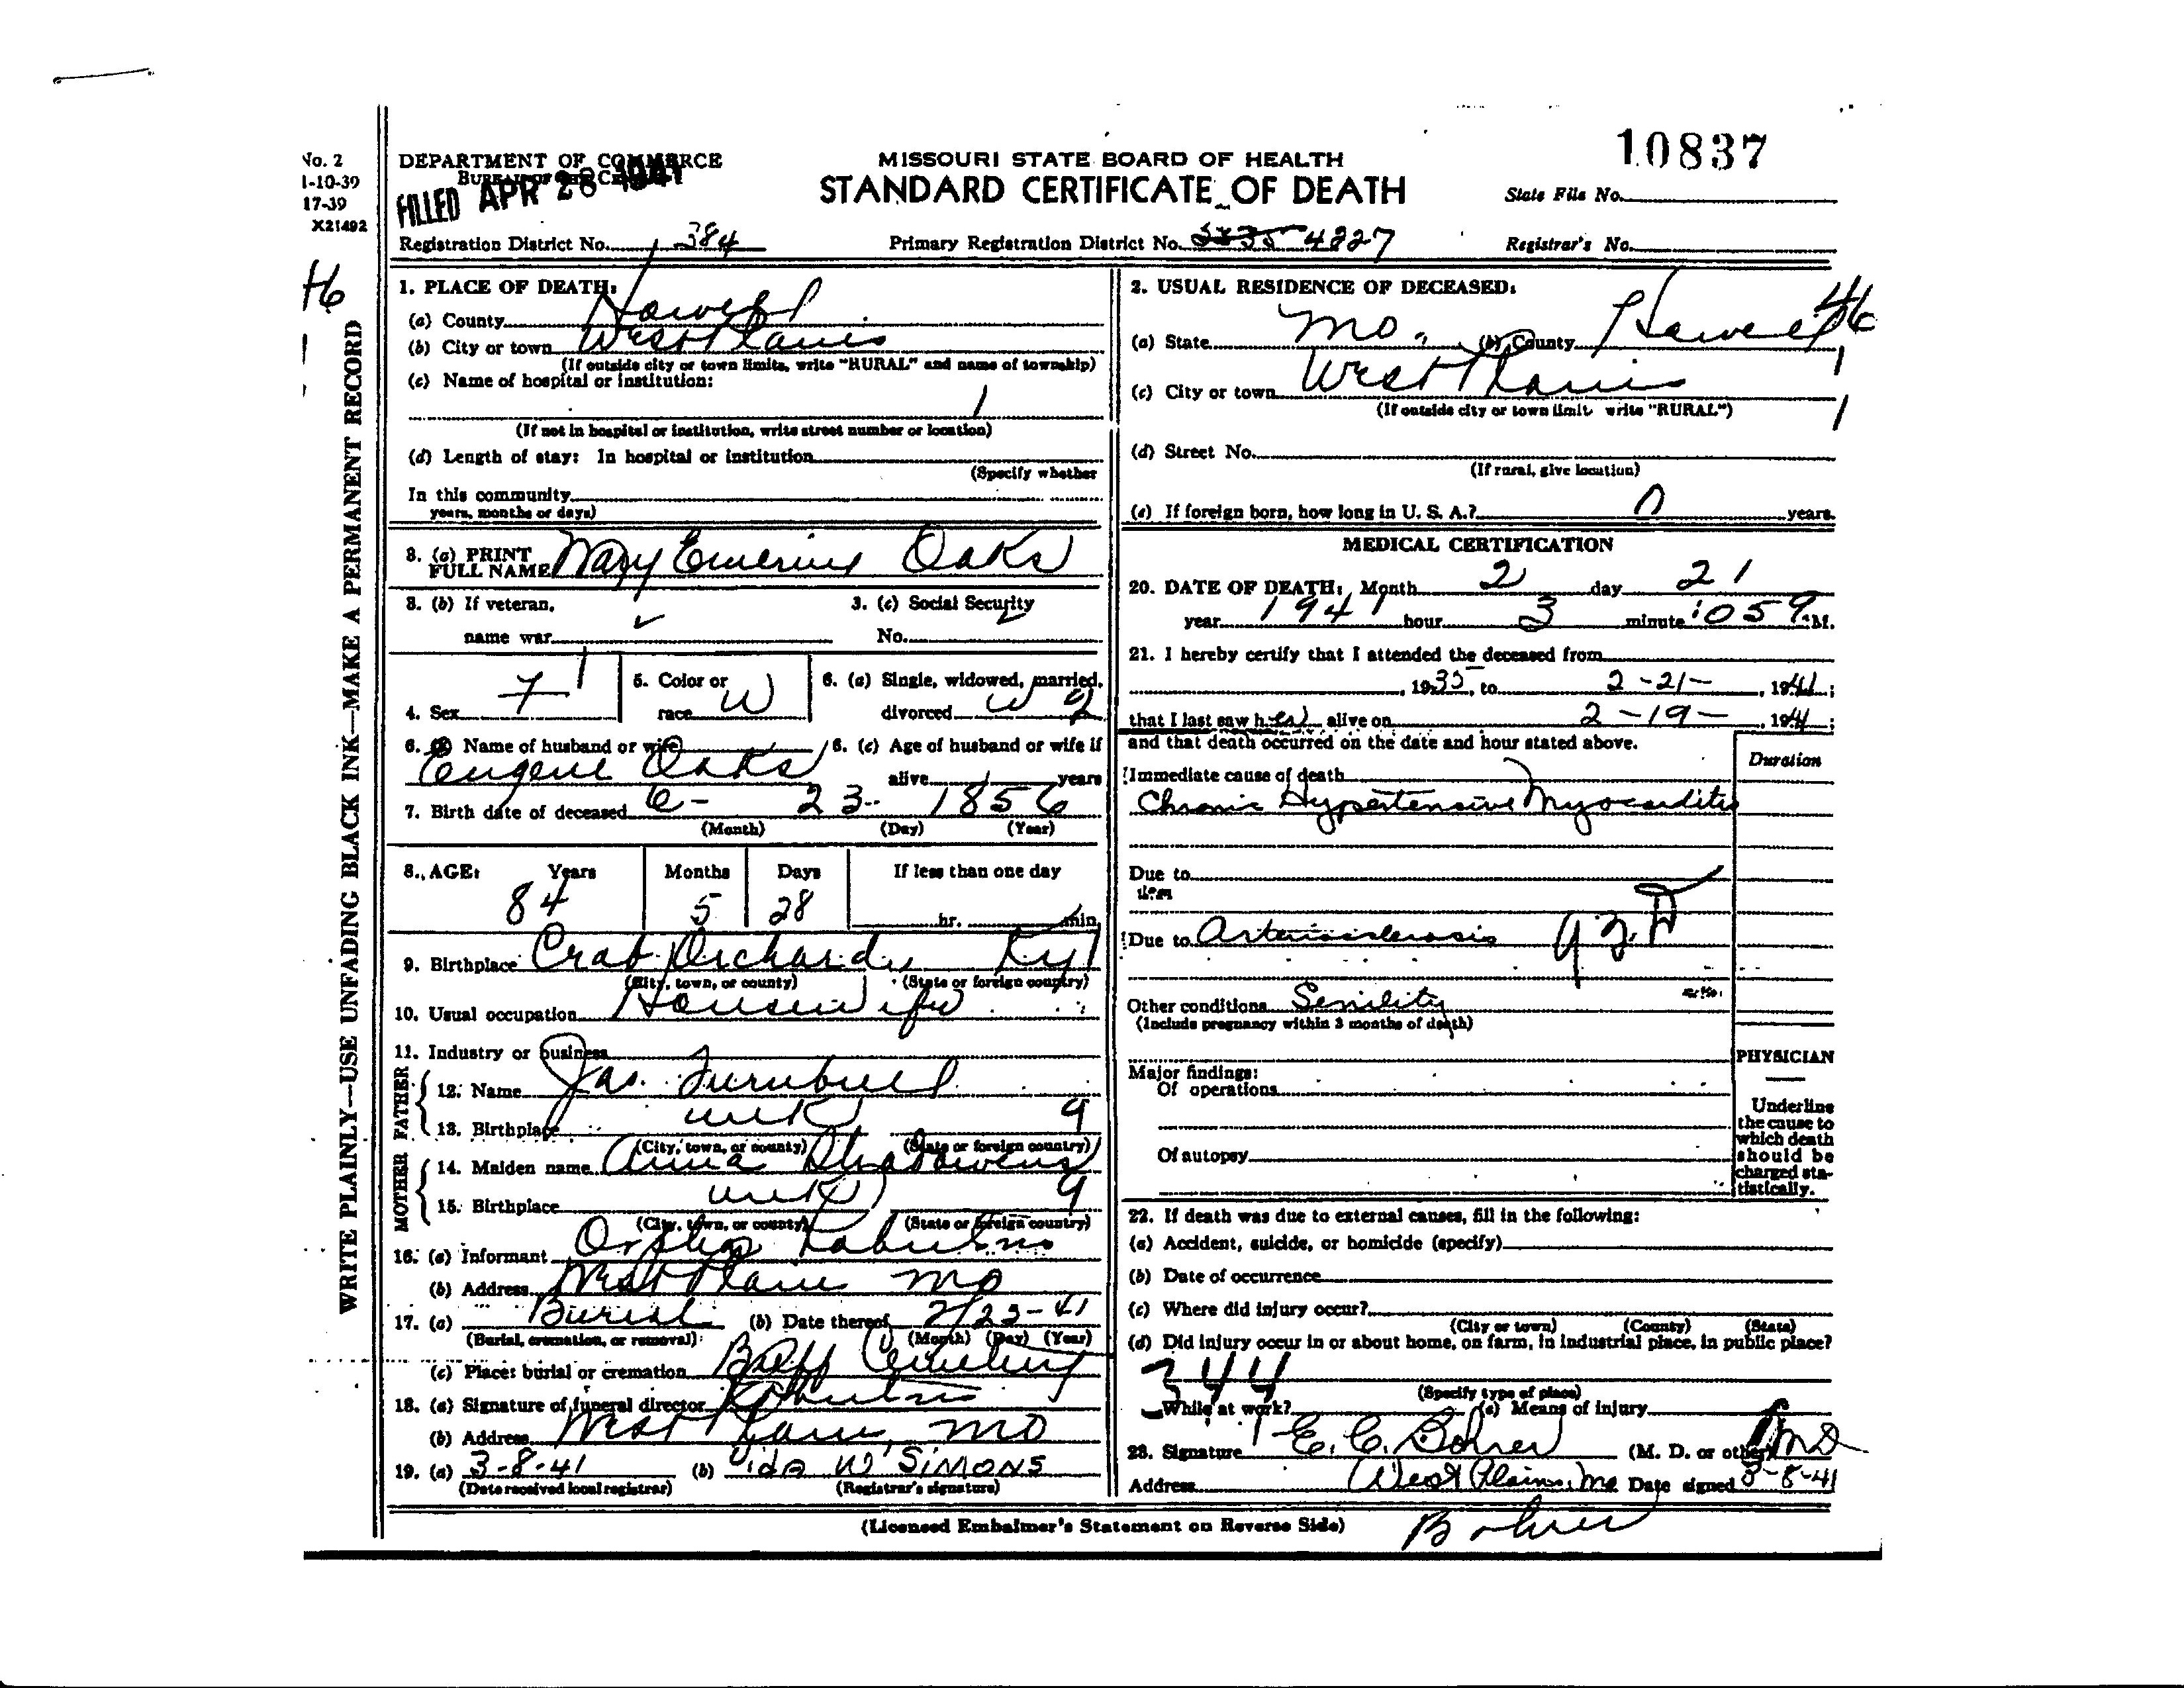 No. 2
1-10-39
17-39
X21492
DEPARTMENT OF COMMERCE
BUREAU OF THE CENSUS
FILED APR 28 1941
MISSOURI STATE BOARD OF HEALTH
STANDARD CERTIFICATE OF DEATH
10837
State File No.
Registration District No. 384
Primary Registration District No. 5835 4227
Registrar's No.
WRITE PLAINLY—USE UNFADING BLACK INK—MAKE A PERMANENT RECORD
1. PLACE OF DEATH:
(a) County Howell
(b) City or town West Plains
(If outside city or town limits, write "RURAL" and name of township)
(c) Name of hospital or institution:
1
(If not in hospital or institution, write street number or location)
(d) Length of stay: In hospital or institution
(Specify whether
In this community
years, months or days)
2. USUAL RESIDENCE OF DECEASED:
46
(a) State Mo. (b) County Howell
1
(c) City or town West Plains
(If outside city or town limit write "RURAL")
1
(d) Street No.
(If rural, give location)
(e) If foreign born, how long in U. S. A.? 0 years.
3. (a) PRINT FULL NAME Mary Emerine Oaks
3. (b) If veteran, name war
3. (c) Social Security No.
4. Sex F 1
5. Color or race W
6. (a) Single, widowed, married, divorced W 2
6. (b) Name of husband or wife Eugene Oaks
6. (c) Age of husband or wife if alive years
7. Birth date of deceased 6- 23- 1856
(Month) (Day) (Year)
8. AGE: Years Months Days If less than one day
84 5 28 hr. min.
9. Birthplace Crab Orchard, Ky 1
(City, town, or county) (State or foreign country)
10. Usual occupation Housewife
11. Industry or business
FATHER
12. Name Jas. Turnbull
13. Birthplace unk 9
(City, town, or county) (State or foreign country)
MOTHER
14. Maiden name Anna
15. Birthplace unk 9
(City, town, or county) (State or foreign country)
16. (a) Informant
(b) Address West Plains Mo
17. (a) Burial (b) Date thereof 2/23-41
(Burial, cremation, or removal) (Month) (Day) (Year)
(c) Place: burial or cremation Cemetery
18. (a) Signature of funeral director
(b) Address West Plains, Mo
19. (a) 3-8-41 (b) Vida W Simons
(Date received local registrar) (Registrar's signature)
MEDICAL CERTIFICATION
20. DATE OF DEATH: Month 2 day 21
year 1941 hour 3 minute :05 P. M.
21. I hereby certify that I attended the deceased from
, 1935, to 2-21-, 1941;
that I last saw her alive on 2-19-, 1941;
and that death occurred on the date and hour stated above.
Duration
Immediate cause of death
Chronic Hypertensive Myocarditis
Due to
Due to Arteriosclerosis
Other conditions Senility
(Include pregnancy within 3 months of death)
PHYSICIAN
Major findings:
Of operations
Of autopsy
Underline the cause to which death should be charged statistically.
22. If death was due to external causes, fill in the following:
(a) Accident, suicide, or homicide (specify)
(b) Date of occurrence
(c) Where did injury occur?
(City or town) (County) (State)
(d) Did injury occur in or about home, on farm, in industrial place, in public place?
344
(Specify type of place)
While at work? (e) Means of injury
23. Signature E. C. Bohrer (M. D. or other) MD
Address West Plains, Mo. Date signed 3-8-41
(Licensed Embalmer's Statement on Reverse Side)
Bohrer